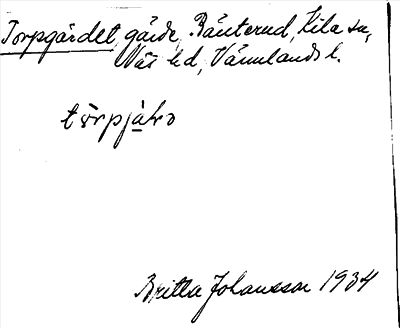 Torpgärdet, gärde, Bänterud, Kila sn,
Näs hd, Värmlands l.
Britta Johansson 1934